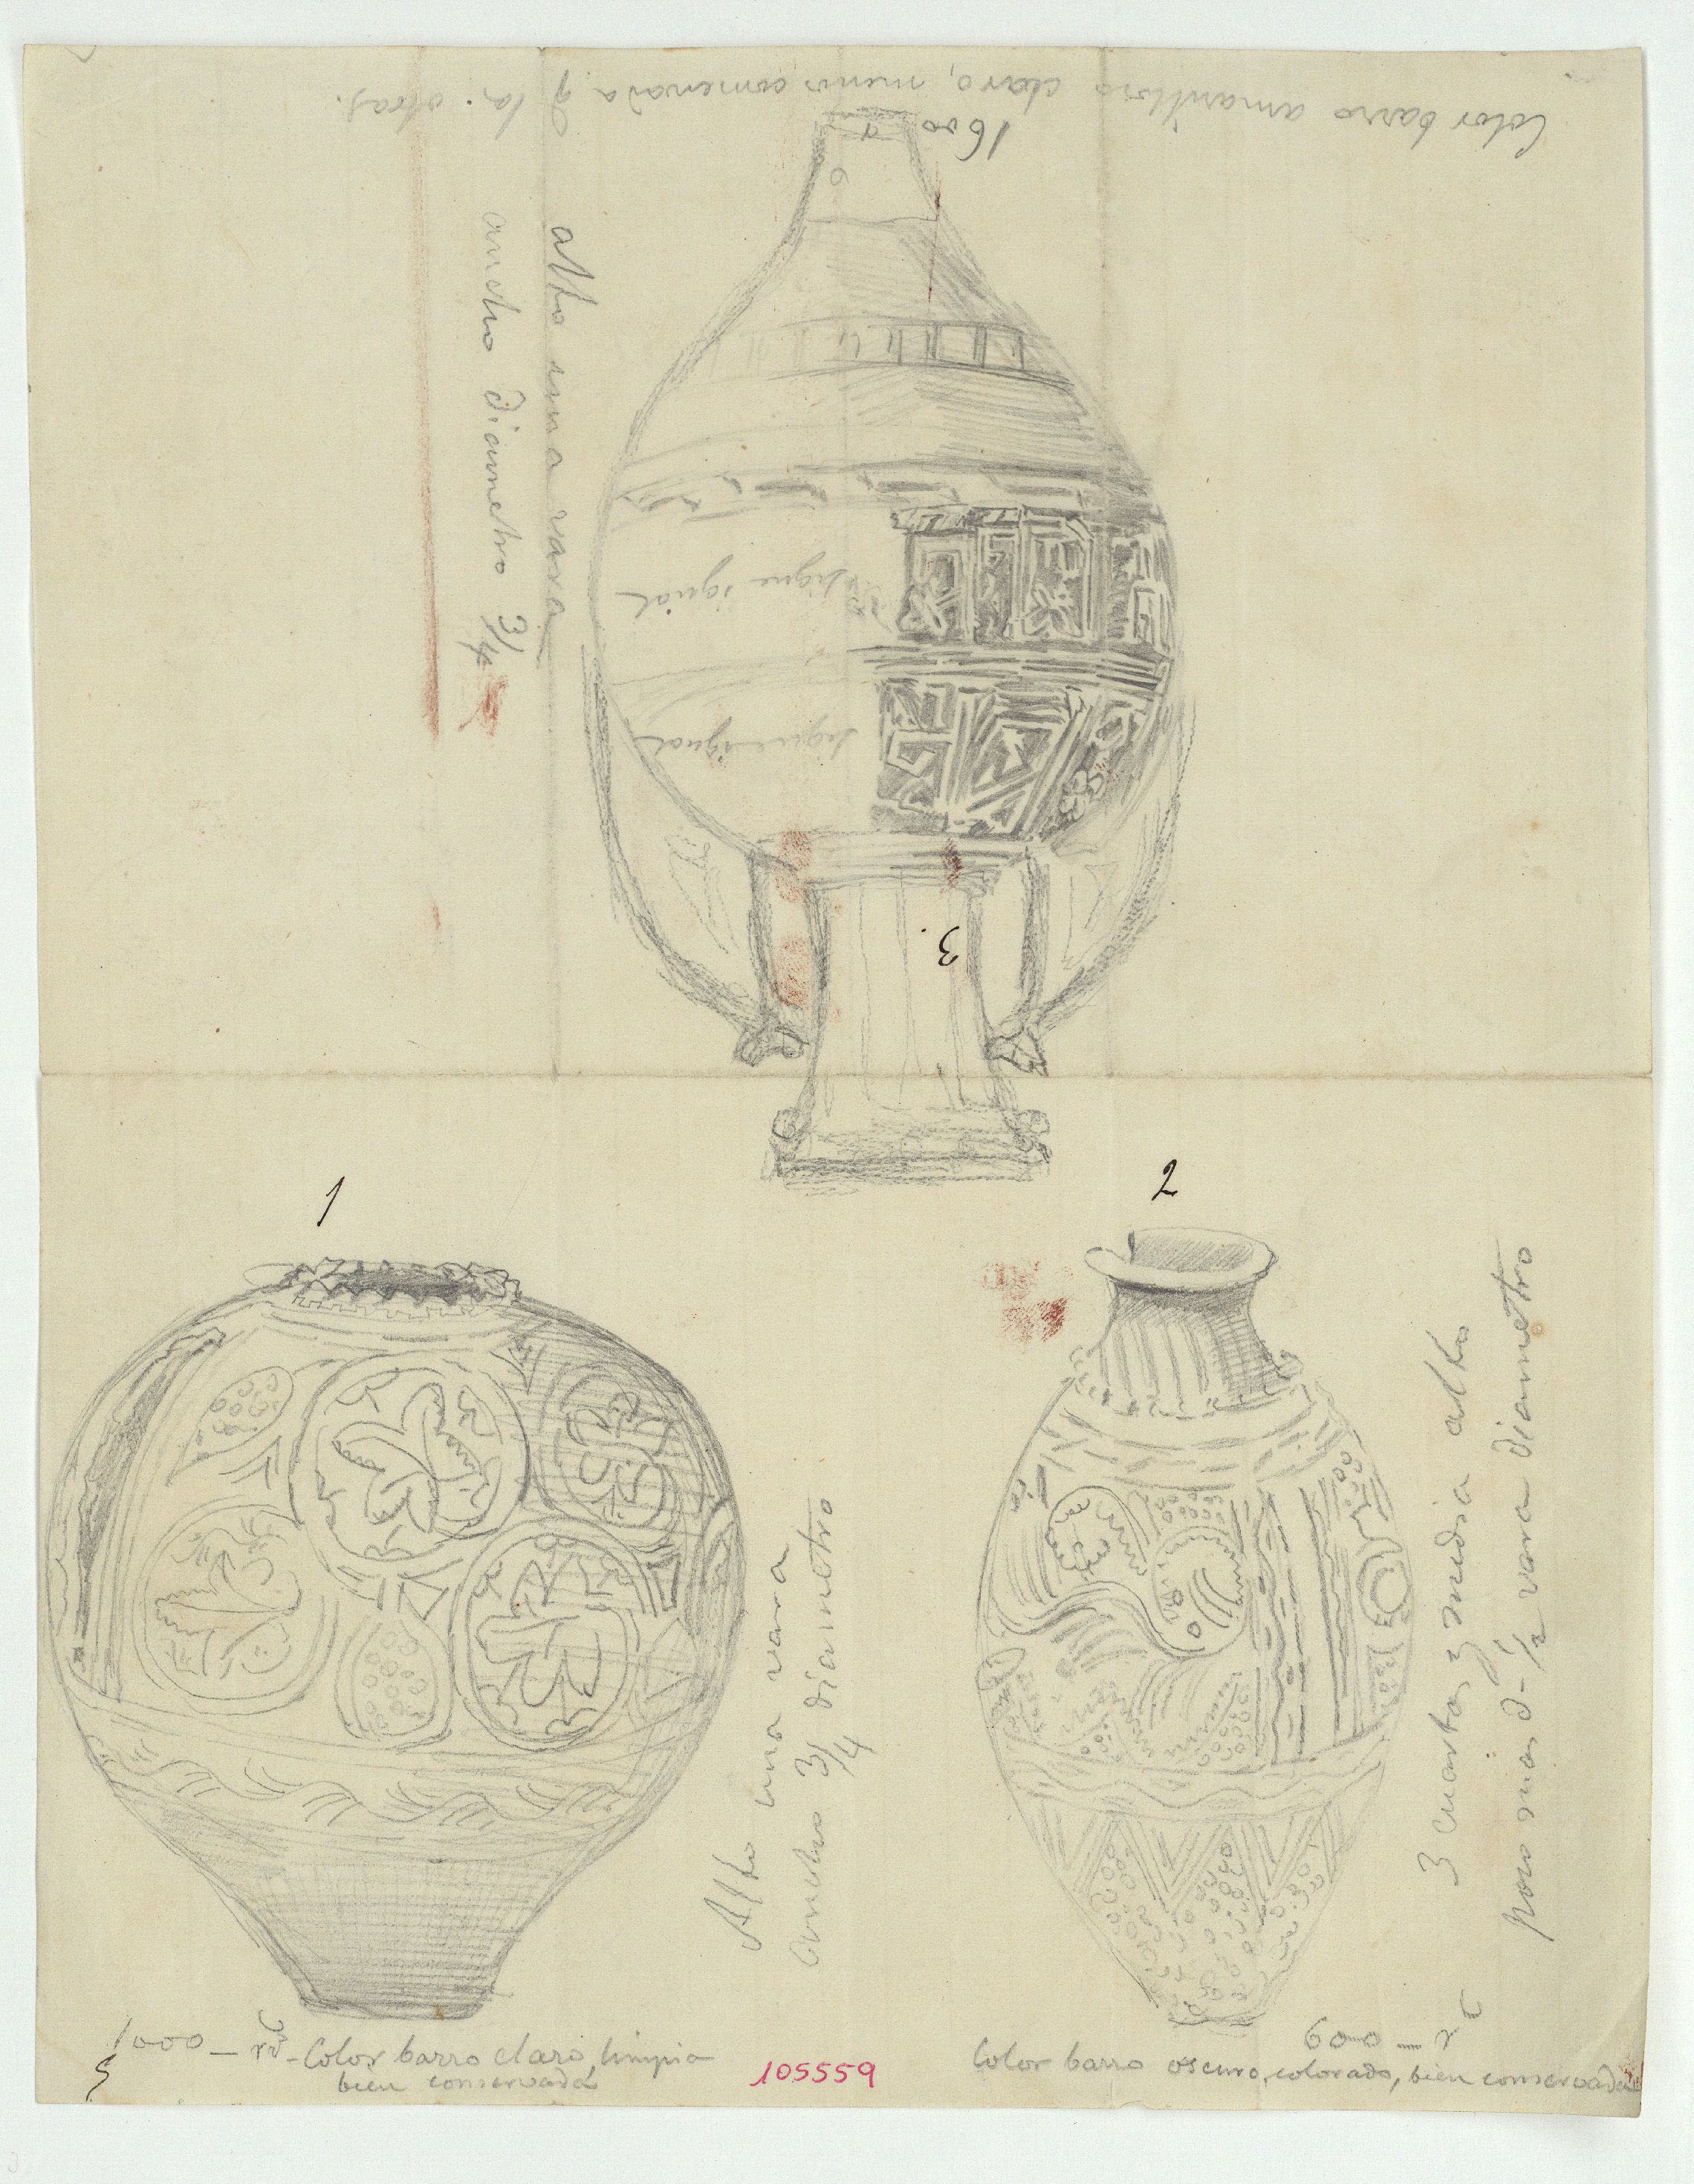 Color barro amarilloso claro, menos conservada q. las otras.
1600
alto una vara
ancho diametro 3/4
sigue igual
sigue igual
3.
1
2
Alto una vara
ancho 3/4 diametro
3 cuartas y media alto
poco mas d- 1/2 vara diametro
1000 - rs - Color barro claro, limpia
bien conservada
105559
600 - rs
Color barro oscuro, colorado, bien conservada